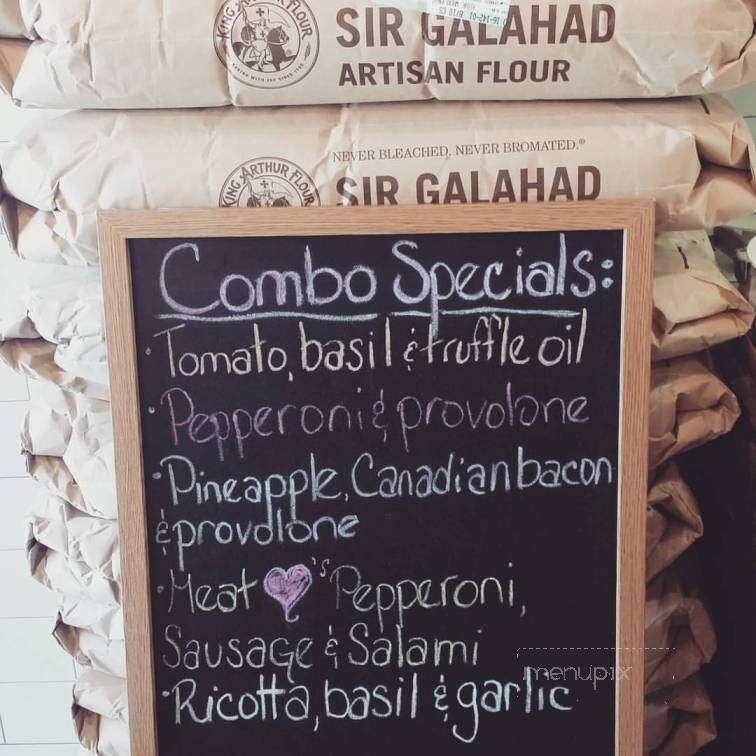 KING ARTHUR FLOUR
SIR GALAHAD
ARTISAN FLOUR
NEVER BLEACHED. NEVER BROMATED.®
KING ARTHUR FLOUR
SIR GALAHAD
Combo Specials:
· Tomato, basil & truffle oil
· Pepperoni & provolone
· Pineapple, Canadian bacon
& provolone
· Meat ♥'s Pepperoni,
Sausage & Salami
· Ricotta, basil & garlic
menupix